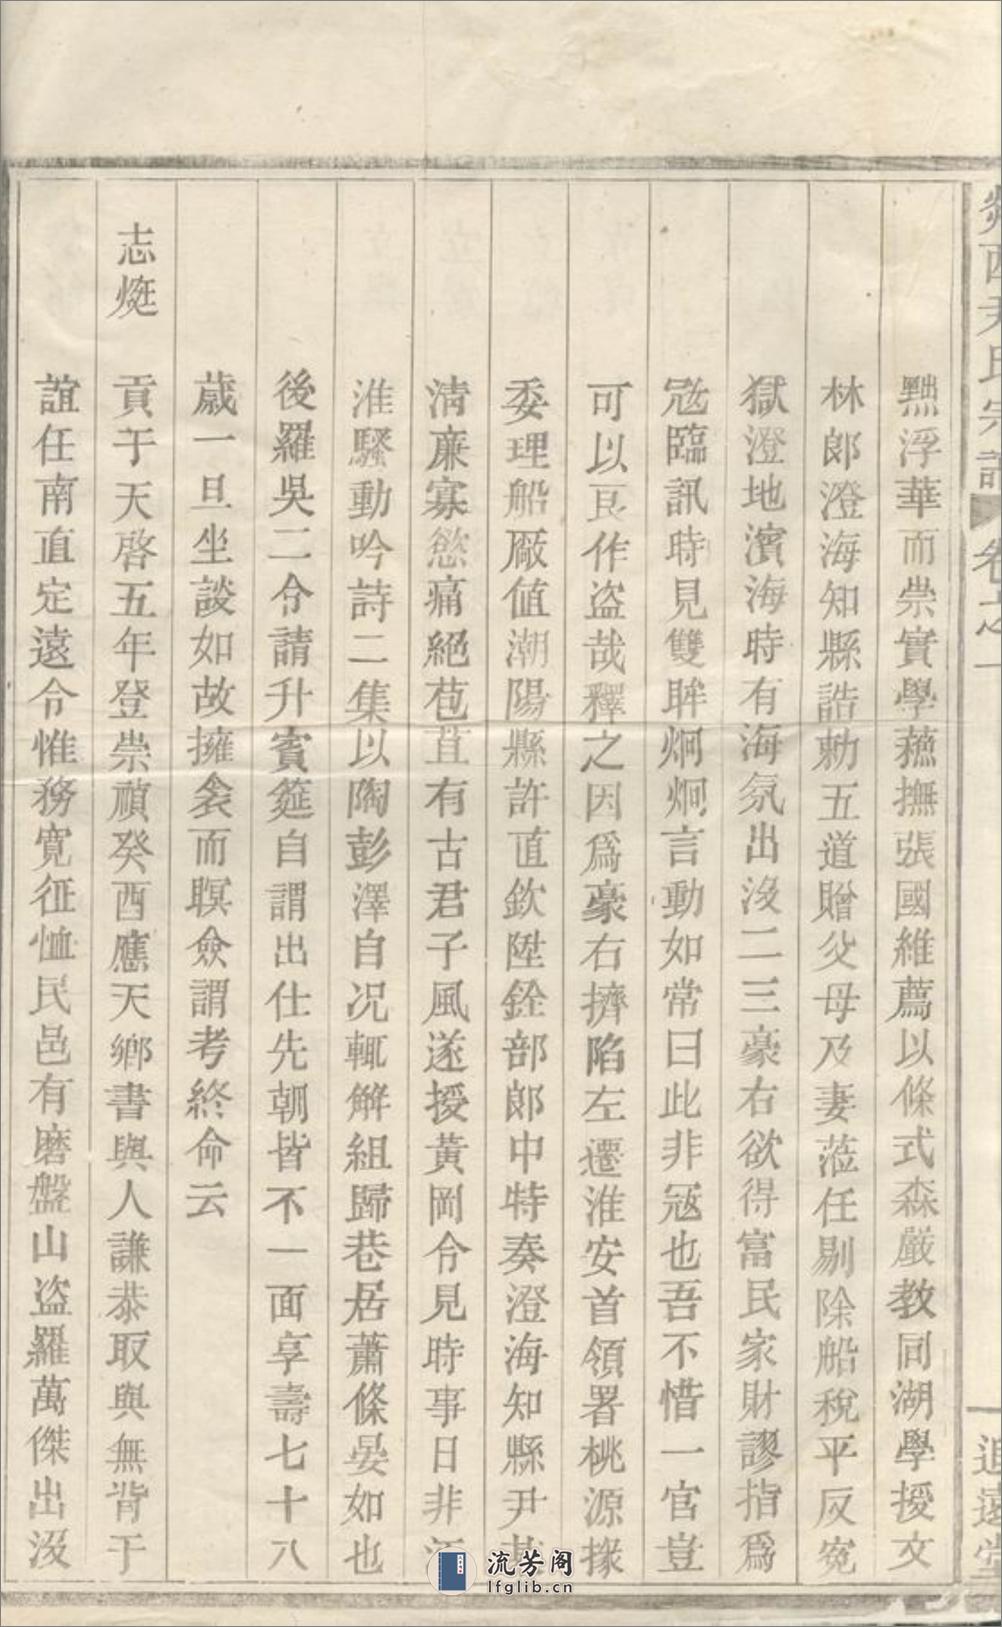 西尹氏宗譜 卷之一 一 追遠堂
黜浮華而崇實學蘓撫張國維薦以條式森嚴教同湖學授文
林郎澄海知縣誥勅五道贈父母及妻蒞任剔除船稅平反寃
獄澄地濱海時有海氛出沒二三豪右欲得富民家財謬指爲
冦臨訊時見雙眸炯炯言動如常曰此非冦也吾不惜一官豈
可以良作盜哉釋之因爲豪右擠陷左遷淮安首領署桃源掾
委理船厰值潮陽縣許直欽陞銓部郎中特奏澄海知縣尹
清亷寡慾痛絕苞苴有古君子風遂授黃岡令見時事日非
淮騷動吟詩二集以陶彭澤自况輒解組歸巷居蕭條晏如也
後羅吳二令請升賓筵自謂出仕先朝皆不一面享壽七十八
歲一旦坐談如故擁衾而瞑僉謂考終命云
志烶 貢于天啓五年登崇禎癸酉應天鄉書與人謙恭取與無背于
誼任南直定遠令惟務寬征恤民邑有磨盤山盜羅萬傑出沒
流芳阁
lfglib.cn